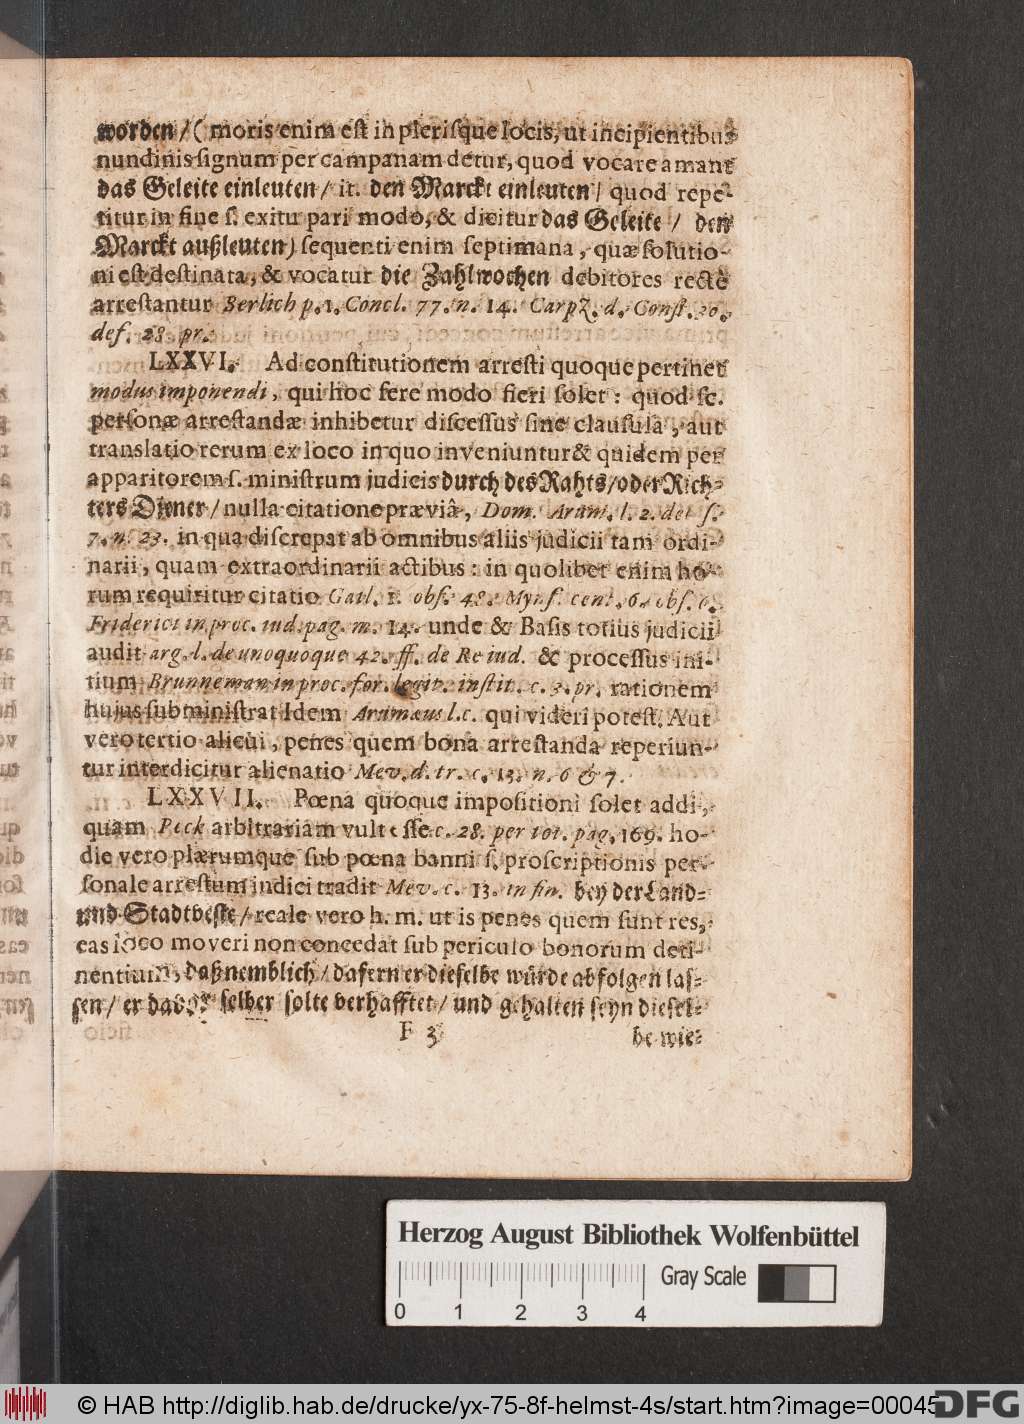 worden / ( moris enim est in plerisque locis, ut incipientibus
nundinis signum per campanam detur, quod vocare amant
das Geleite einleuten / it. den Marckt einleuten / quod repe-
titur in fine s. exitu pari modo, & dicitur das Geleite / den
Marckt außleuten) sequenti enim septimana, quæ solutio-
ni est destinata, & vocatur die Zahlwochen debitores rectè
arrestantur Berlich p. 1. Concl. 77. n. 14. Carpz. d. Const. 20.
def. 28. pr.
LXXVI. Ad constitutionem arresti quoque pertinet
modus imponendi, qui hoc fere modo fieri solet: quod sc.
personæ arrestandæ inhibetur discessus sine clausulâ, aut
translatio rerum ex loco in quo inveniuntur & quidem per
apparitorem s. ministrum judicis durch des Rahts / oder Rich-
ters Diener / nulla citatione præviâ, Dom. Arum. l. 2. dec s.
7. n. 23. in qua discrepat ab omnibus aliis judicii tam ordi-
narii, quam extraordinarii actibus: in quolibet enim ho-
rum requiritur citatio Gail. 1. obs. 48. Myns. cent. 6. obs. 6.
Friderici in proc. iud. pag. m. 14. unde & Basis totius judicii
audit arg. l. de unoquoque 42. ff. de Re iud. & processus ini-
tium Brunneman in proc. for. legit. instit. c. 3. pr. rationem
hujus subministrat Idem Arumæus l. c. qui videri potest. Aut
vero tertio alicui, penes quem bona arrestanda reperiun-
tur interdicitur alienatio Mev. d. tr. c. 13. n. 6 & 7.
LXXVII. Pœna quoque impositioni solet addi,
quam Peck arbitrariam vult esse c. 28. per tot. pag. 169. ho-
die vero plærumque sub pœna banni s. proscriptionis per-
sonale arrestum indici tradit Mev. c. 13. in fin. bey der Land-
und Stadtveste / reale vero h. m. ut is penes quem sunt res,
eas loco moveri non concedat sub periculo bonorum deti-
nentium, daß nemblich / dafern er dieselbe würde abfolgen las-
sen / er davor selber solte verhafftet / und gehalten seyn diesel-
F 3
be wie-
ficio
Herzog August Bibliothek Wolfenbüttel
Gray Scale
0 1 2 3 4
© HAB http://diglib.hab.de/drucke/yx-75-8f-helmst-4s/start.htm?image=00045
DFG